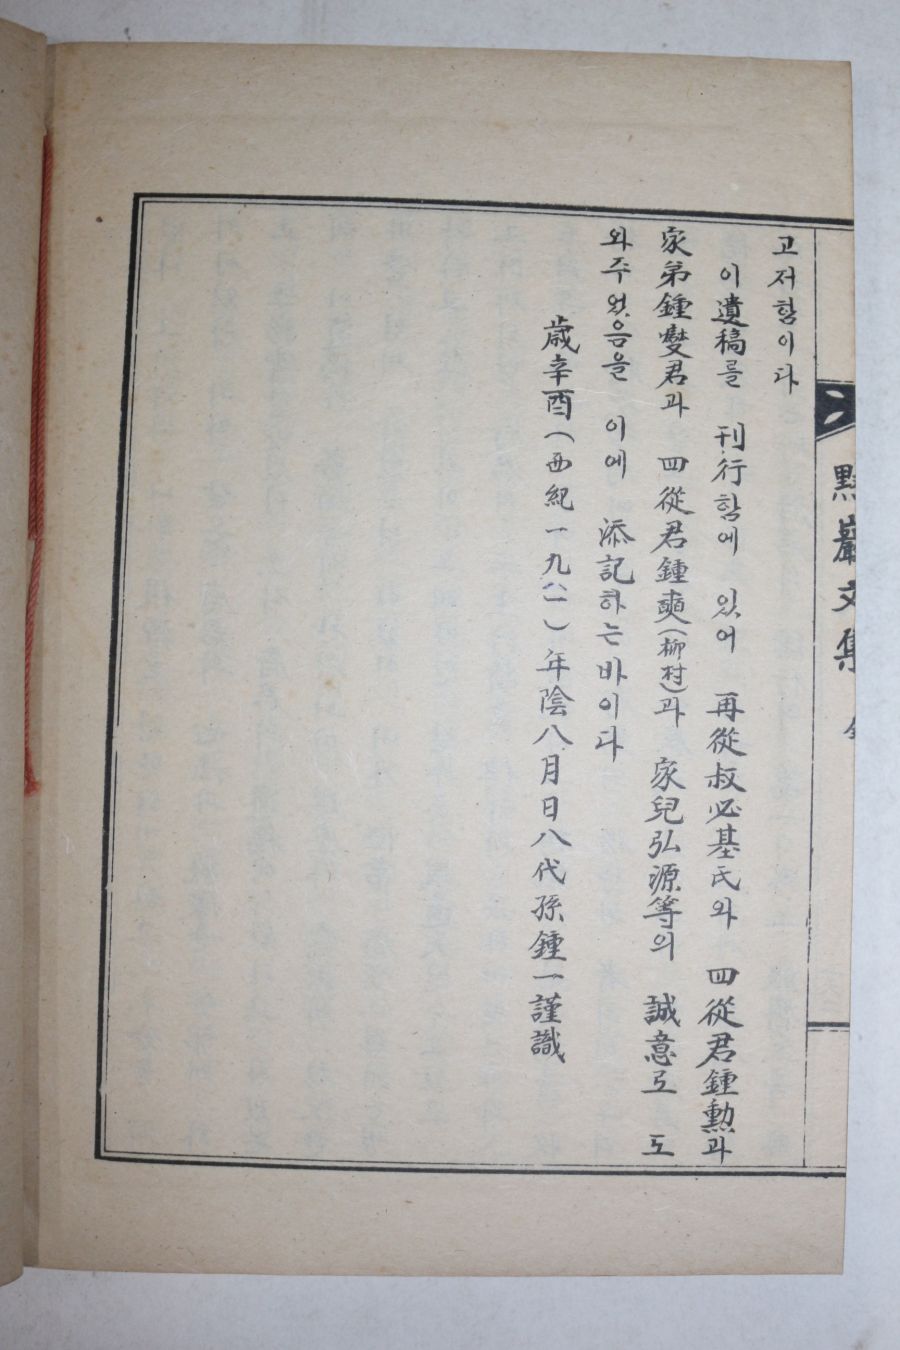 고저함이다
이遺稿를 刊行함에 있어 再從叔必基氏와 四從君鍾勳과
家弟鍾燮君과 四從君鍾奭(柳村)과 家兒弘源等의 誠意로 도
와주었음을 이에 添記하는바이다
歲辛酉(西紀一九八一)年陰八月日八代孫鍾一謹識
默巖文集